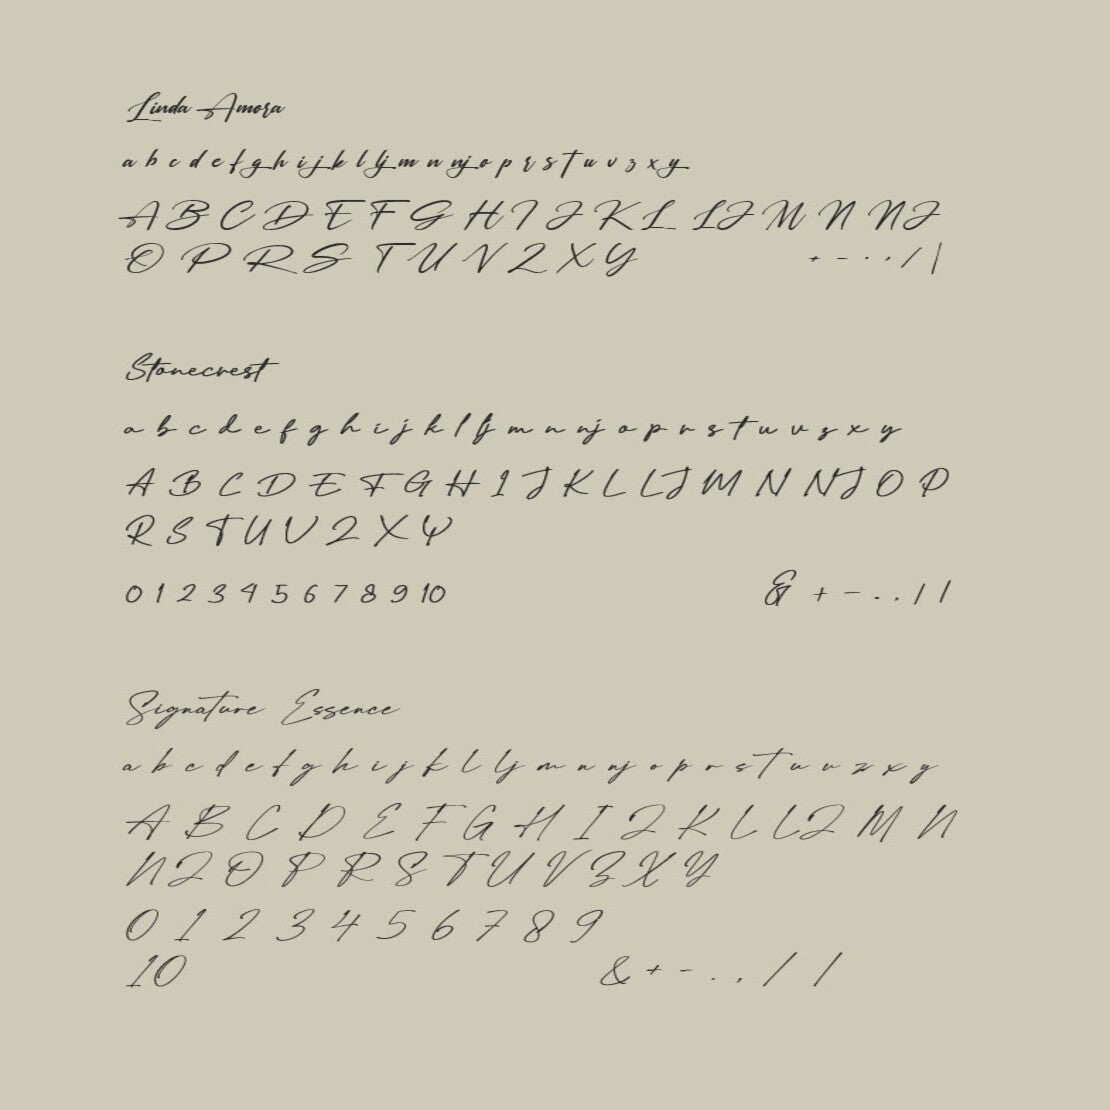 Linda Amora
a b c d e f g h i j k l lj m n nj o p r s t u v z x y
A B C D E F G H I J K L LJ M N NJ
O P R S T U V Z X Y + - . , / |
Stonecrest
a b c d e f g h i j k l lj m n nj o p r s t u v z x y
A B C D E F G H I J K L LJ M N NJ O P
R S T U V Z X Y
0 1 2 3 4 5 6 7 8 9 10 & + - . . / /
Signature Essence
a b c d e f g h i j k l lj m n nj o p r s t u v z x y
A B C D E F G H I J K L LJ M N
NJ O P R S T U V Z X Y
0 1 2 3 4 5 6 7 8 9
10 & + - . , / /